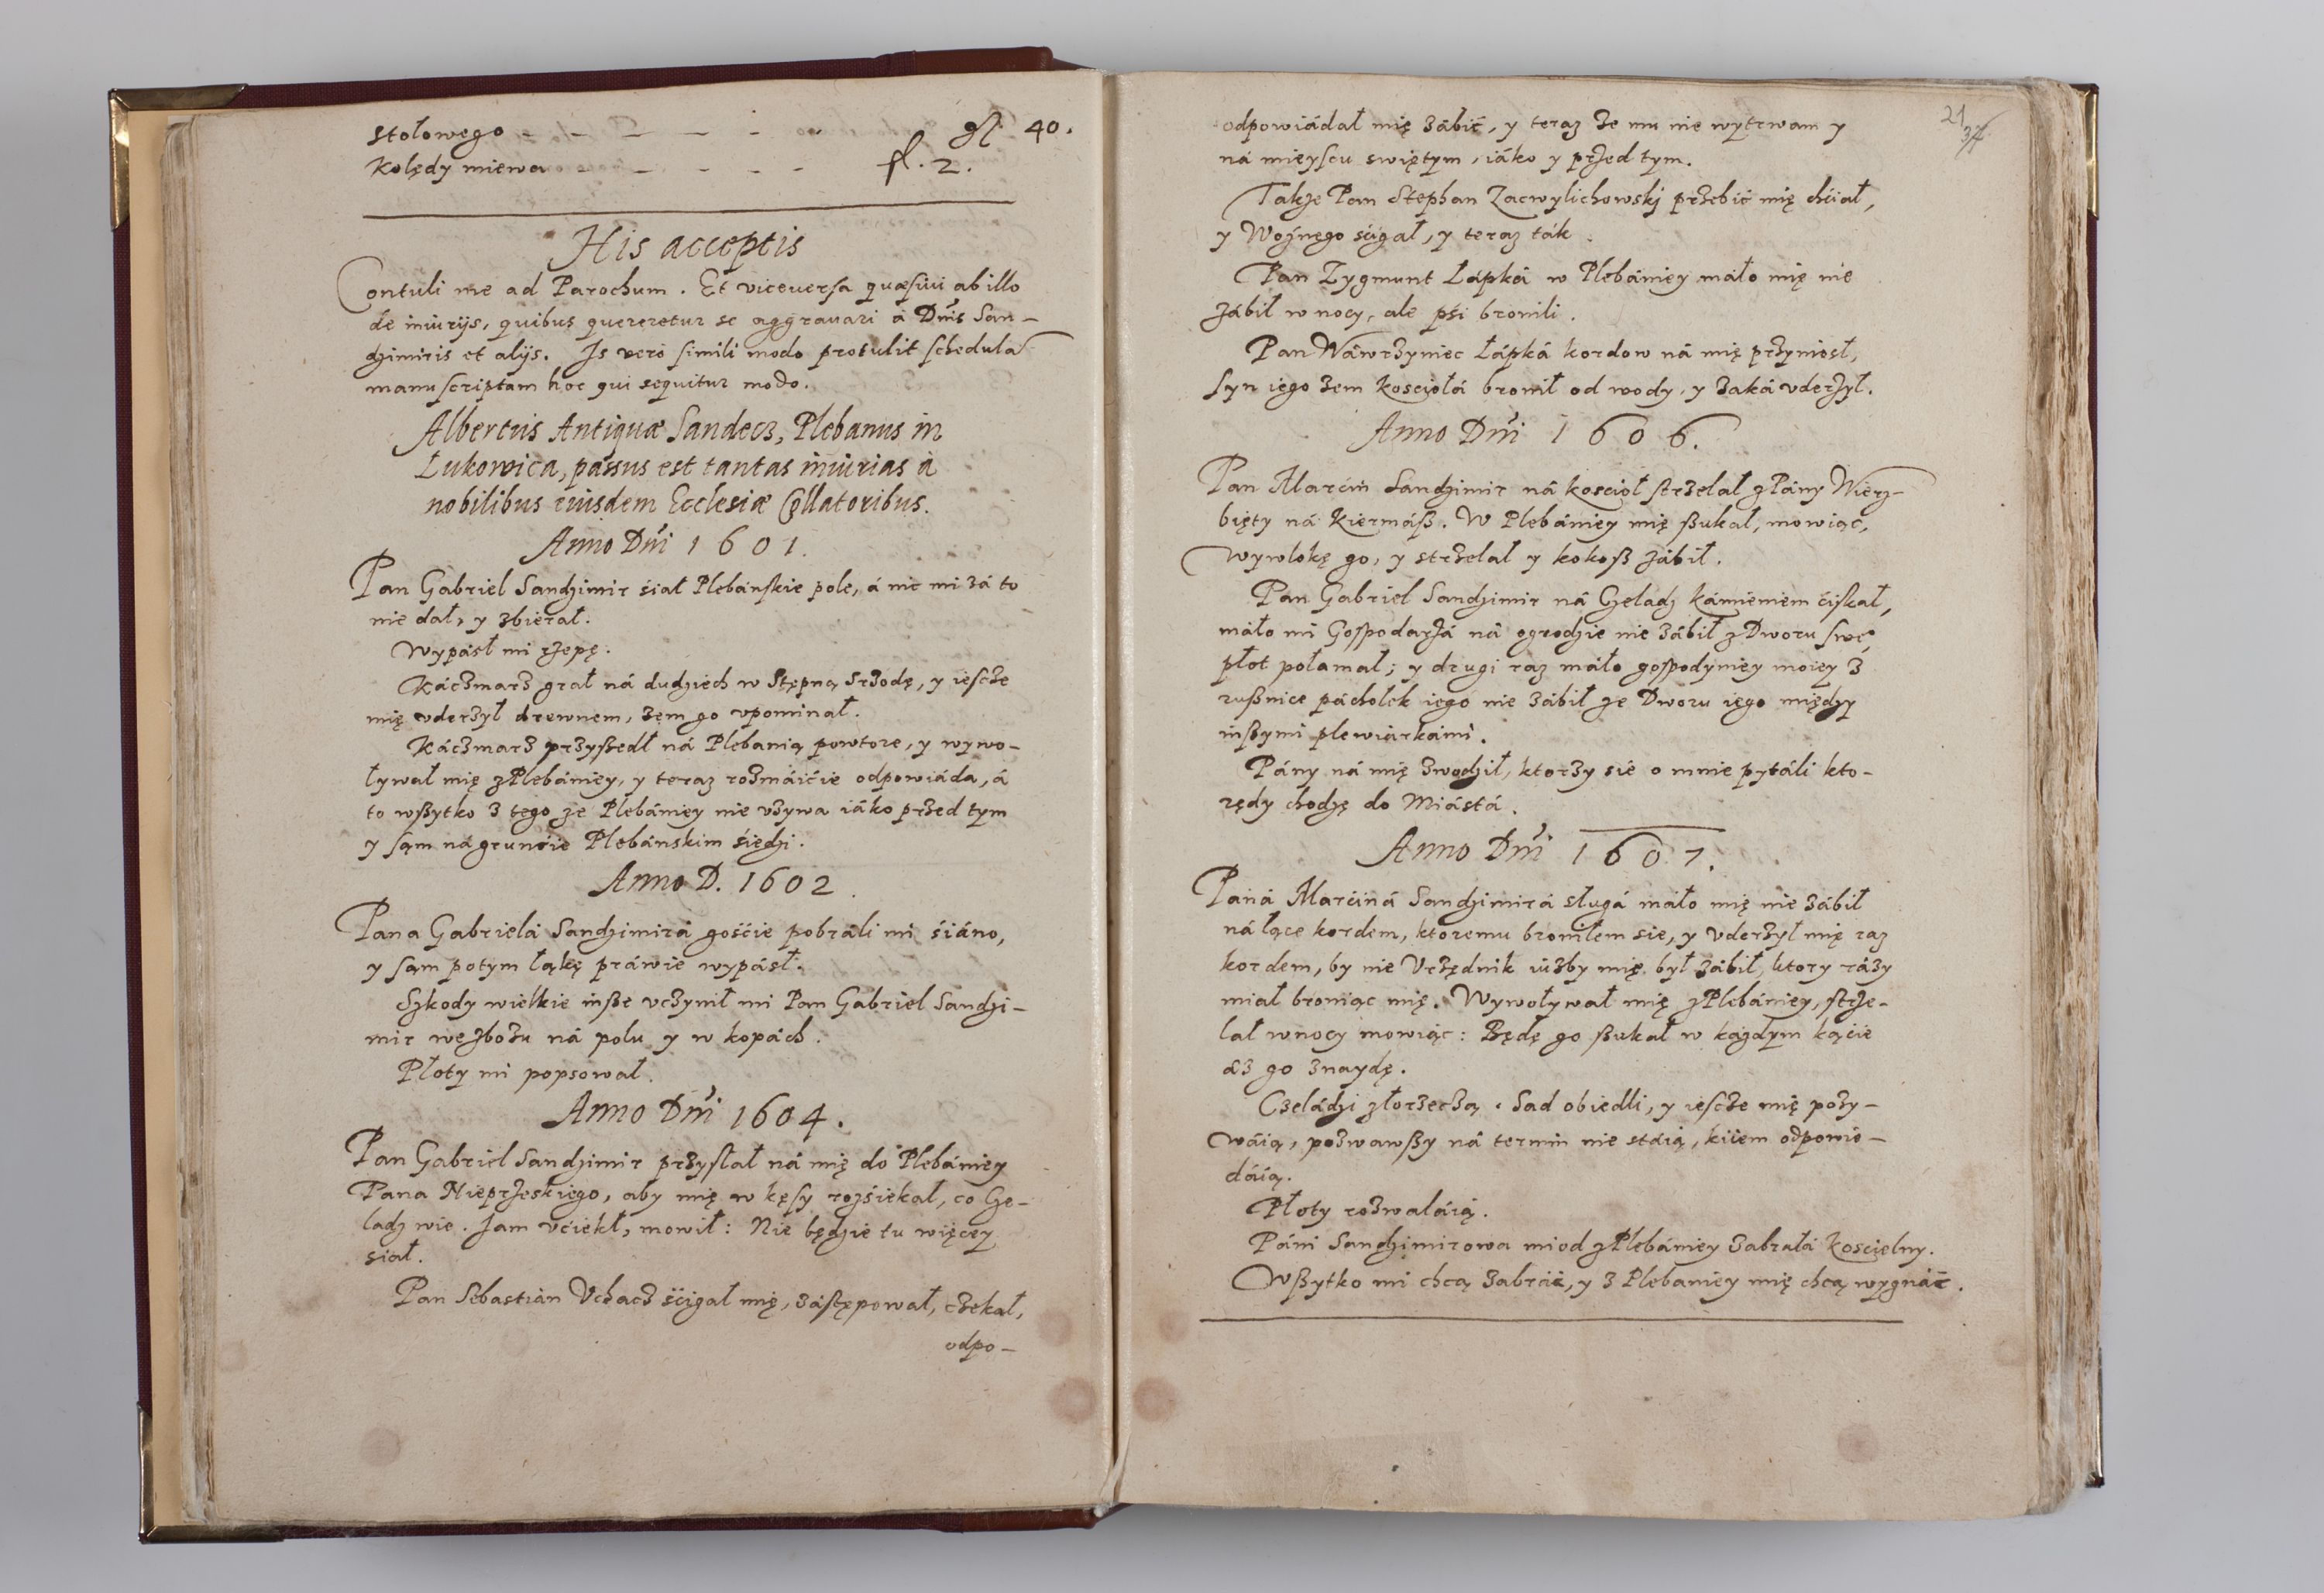 stołowego - - - - - - gr. 40.
Kolędy miewa - - - - - fl. 2.
His acceptis
Contuli me ad Parochum. Et viceuersa quæsiui ab illo
de iniurijs, quibus quereretur se aggrauari à Dnis San-
dzimiris et alijs. Is verò simili modo protulit schedulā
manuscriptam hoc qui sequitur modo.
Albertus Antiquæ Sandecz, Plebanus in
Łukowica, passus est tantas iniurias à
nobilibus eiusdem Ecclesiæ Collatoribus.
Anno Dni 1601.
Pan Gabriel Sandzimir śiał Plebánskie pole, á nic mi zá to
nie dał, y zbierał.
Wypásł mi rzepę.
Káczmarz grał ná dudziech w Stępną Srzodę, y iescze
mię vderzył drewnem, zem go vpominał.
Káczmarz przyßedł ná Plebanią powtore, y wywo-
ływał mię z Plebániey, y teraz rozmáićie odpowiáda, á
to wßytko z tego ze Plebániey nie vzywa iáko przed tym
y sąm ná grunćie Plebánskim śiedzi.
Anno D. 1602.
Pana Gabrielá Sandzimirá gośćie pobráli mi śiáno,
y sąm potym łąkę práwie wypásł.
Szkody wielkie inße vczynił mi Pan Gabriel Sandzi-
mir we zbozu ná polu y w kopách.
Płoty mi popsował.
Anno Dni 1604.
Pan Gabriel Sandzimir przysłał ná mię do Plebániey
Pana Nieprzeskiego, aby mię w kęsy rozśiekał, co Cze-
ladz wie. Jam vćiekł, mowił: Nie będzie tu więcey
siał.
Pan Sebastian Vchacz śćigał mię, zástępował, czekał,
odpo-
21
37
odpowiádał mię zábić, y teraz ze mu nie wytrwam y
ná mieyscu swiętym, iáko y przed tym.
Takze Pan Stephan Zacwylichowskj przebić mię chćiał,
y Woznego śćigał, y teraz ták.
Pan Zygmunt Łápká w Plebániey máło mię nie
zábił w nocy, ale pśi bronili.
Pan Wáwrzyniec Łápká kordow ná mię przyniosł,
syn iego zem kosciołá bronił od wody, y zaká vderzył.
Anno Dni 1606.
Pan Marćin Sandzimir ná koscioł strzelał z Pány Wierz-
bięty ná Kiermáß. W Plebániey mię ßukał, mowiąc,
wywlokę go, y strzelał y kokoß zábił.
Pan Gabriel Sandzimir ná Czeladz kámieniem ćiskał,
máło mi Gospodarzá ná ogrodzie nie zábił z Dworu swe°,
płot połamał; y drugi raz máło gospodyniey moiey z
rußnice páchołek iego nie zábił ze Dworu iego między
inßymi plewiarkámi.
Pány ná mię zwodził, ktorzy sie o mnie pytáli kto-
rędy chodzę do Miástá.
Anno Dni 1607.
Páná Marćiná Sandzimirá sługá máło mię nie zábił
ná łące kordem, ktoremu broniłem sie, y vderzył mię raz
kordem, by nie Vrzędnik iuzby mię był zábił, ktory rázy
miał broniąc mię. Wywoływał mię z Plebániey, strze-
lał w nocy mowiąc: Będę go ßukał w kazdym kąćie
az go znaydę.
Czeládzi złorzeczą. Sad obiedli, y iescze mię pozy-
wáią, pozwawßy ná termin nie stáią, kiiem odpowie-
dáią.
Płoty rozwaláią.
Páni Sandzimirowa miod z Plebániey zabrałá Koscielny.
Wßytko mi chcą zabráć, y z Plebaniey mię chcą wygnáć.